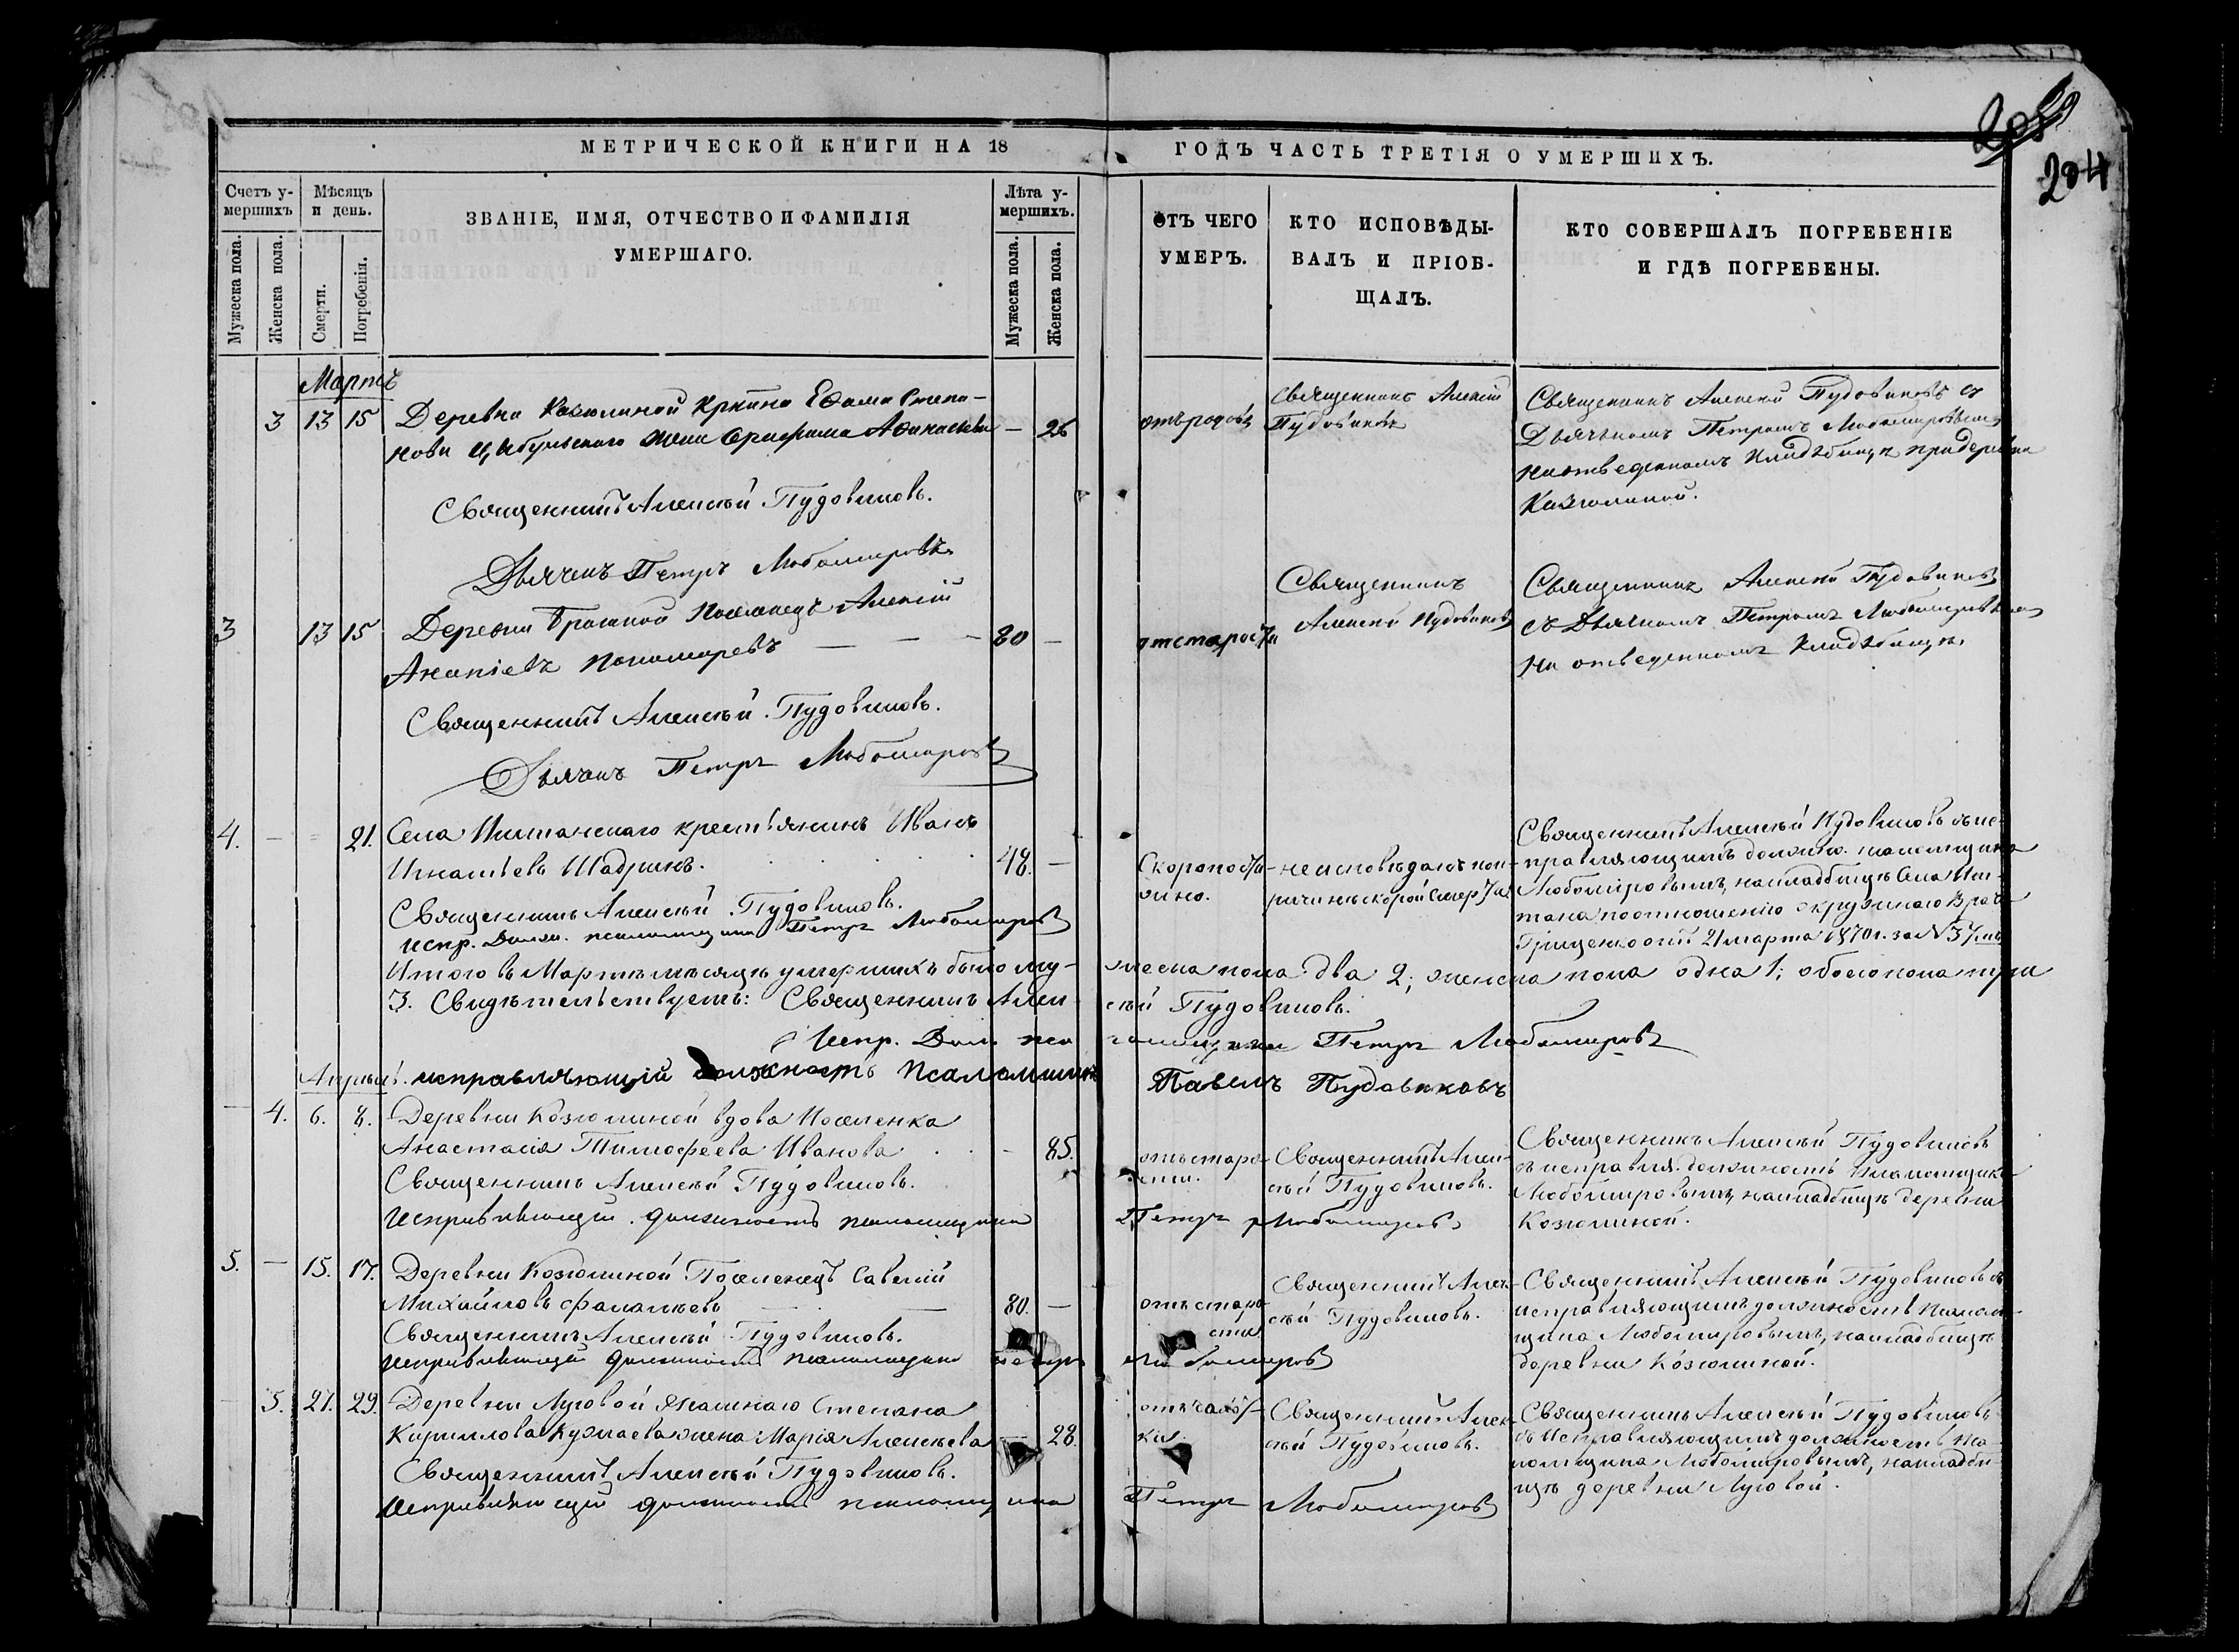 204
МЕТРИЧЕСКОЙ КНИГИ НА 18 ГОДЪ ЧАСТЬ ТРЕТІЯ О УМЕРШИХЪ.
Счетъ у-
мершихъ
Мужеска пола.
Женска пола.
Мѣсяцъ
и день.
Смерти.
Погребенія.
ЗВАНІЕ, ИМЯ, ОТЧЕСТВО И ФАМИЛІЯ
УМЕРШАГО.
Лѣта у-
мершихъ.
Мужеска пола.
Женска пола.
ОТЪ ЧЕГО
УМЕРЪ.
КТО ИСПОВѢДЫ-
ВАЛЪ И ПРІОБ-
ЩАЛЪ.
КТО СОВЕРШАЛЪ ПОГРЕБЕНІЕ
И ГДѢ ПОГРЕБЕНЫ.
Мартъ
3 13 15
Деревни Козюлиной Ефима Степа-
нова Цыбульскаго жена
— 26
отъ родовъ
Священникъ Алексій
Пудовиковъ
Священникъ Алексій Пудовиковъ съ
Дьячкомъ Петромъ Любомировымъ
на отведенномъ кладбищѣ при деревни
Козюлиной.
Священникъ Алексѣй Пудовиковъ.
Дьячекъ Петръ Любомировъ
3 13 15
Деревни Поселенецъ Алексій
Ананіевъ Пономаревъ — — 80 —
отстарости
Священникъ
Алексій Пудовиковъ
Священникъ Алексій Пудовиковъ
съ Дьячкомъ Петромъ Любомировымъ
на отведенномъ кладбищѣ
Священникъ Алексѣй Пудовиковъ.
Дьячекъ Петръ Любомировъ
4. — = 21.
Села Иштанскаго крестьянинъ Иванъ
Игнатьевъ Шадринъ. 48. —
Скоропости-
жно.
неисповѣданъ попри-
ричинѣ скорой смерти
Священникъ Алексѣй Пудовиковъ съ ис-
правляющимъ должно. псаломщика
Любомировымъ, на кладбищѣ Села Иш-
тана по отношенію окружнаго врача
Грищенко отъ 21 марта 1870 г. за №37мъ
Священникъ Алексѣй Пудовиковъ.
Испр. Долж. псаломщика Петръ Любомировъ
Итого въ Мартѣ мѣсяцѣ умершихъ было му-
жеска пола два 2; женска пола одна 1; обоего пола три
3. Свидѣтельствуемъ: Священникъ Алек-
сѣй Пудовиковъ.
Испр. Долж. псаломщика Петръ Любомировъ
Апрѣль. исправляющій должность Псаломщика Павелъ Пудовиковъ
— 4. 6. 8.
Деревни Козюлиной вдова Поселенка
Анастасія Тимофеева Иванова . . - 85.
отъ старо-
сти.
Священникъ Алек-
сѣй Пудовиковъ.
Священникъ Алексѣй Пудовиковъ
съ исправля. должность псаломщика
Любомировымъ, на кладбищѣ деревни
Козюлиной.
Священникъ Алексѣй Пудовиковъ.
Исправляющій должность псаломщика Петръ Любомировъ
5. — 15. 17.
Деревни Козюлиной Поселенецъ Савелій
Михайловъ — — 80. —
отъ старо-
сти
Священникъ Алек-
сѣй Пудовиковъ.
Священникъ Алексѣй Пудовиковъ съ
исправляющимъ должность псалом-
щика Любомировымъ, на кладбищѣ
деревни Козюлиной.
Священникъ Алексѣй Пудовиковъ.
исправляющій должность псаломщика Петръ Любомировъ
5. 27. 29.
Деревни Луговой Степана
Кириллова жена Марія Алексѣева — 28.
отъ чахот-
ки.
Священникъ Алек-
сѣй Пудовиковъ.
Священникъ Алексѣй Пудовиковъ
съ исправляющимъ должность пса-
ломщика Любомировымъ, на кладби-
щѣ деревни Луговой.
Священникъ Алексѣй Пудовиковъ.
Исправляющій должность псаломщика Петръ Любомировъ